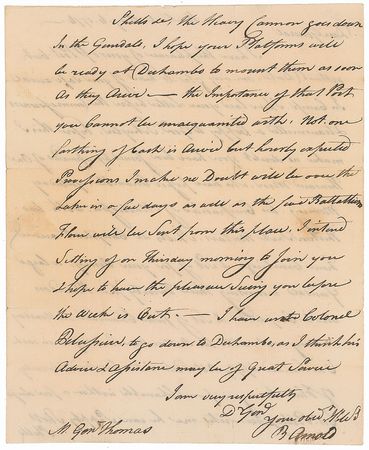 Shells &c, the Heavy Cannon goes down
In the Gundalo, I hope your Platforms will
be ready at Dechambo to mount them as soon
as they Arive — the Importance of that Post
you Cannot be unacquainted with. Not one
farthing of Cash is Arriv'd but hourly expected
Provisions I make no Doubt will be over the
Lake in a few days as well as the five Battallions
Flour will be Sent from this place. I intend
Setting of on Thursday morning to join you
& hope to have the pleasure Seeing you before
the Week is Out. — I have Colonel
Pelissier, to go down to Dechambo, as I think his
Advice & Assistance may be of Great Service
I am very respectfully
Dr Genl
Your Obedt Hble S
B Arnold
Mr Genl Thomas